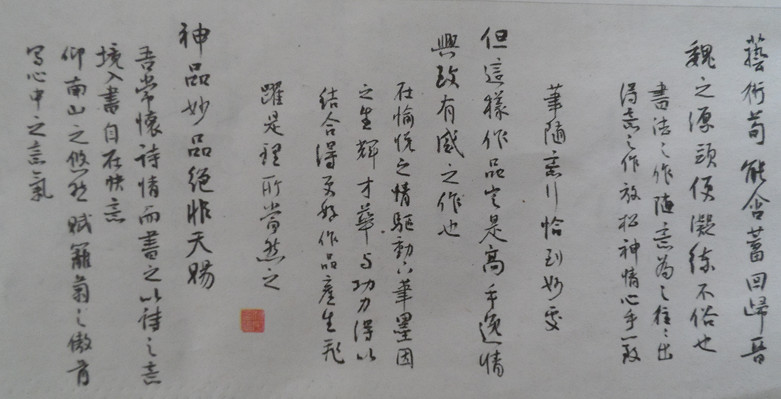 藝術苟能含蓄回歸晉
魏之源頭便凝練不俗也
書法之作隨意為之往往出
得意之作放松神情心手一致
筆隨意行恰到妙處
但這樣作品定是高手逸情
興致有感之作也
在愉悅之情驅動下筆墨因
之生輝才華与功力得以
結合得更好作品產生飛
躍是理所當然之
神品妙品絕非天賜
吾常懷詩情而書之以詩之意
境入書自在快意
仰南山之悠然賦籬菊之傲首
寫心中之意氣